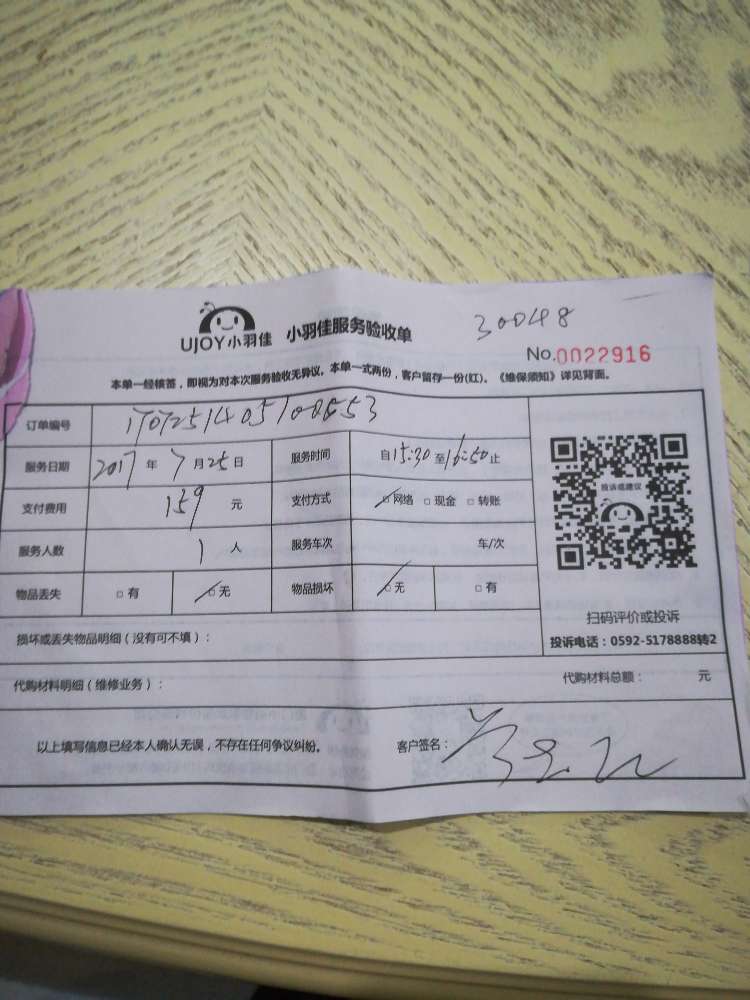 30048
UJOY小羽佳 小羽佳服务验收单
No.0022916
本单一经核签，即视为对本次服务验收无异议。本单一式两份，客户留存一份(红)。《维保须知》详见背面。
订单编号
服务日期 2017年7月25日 服务时间 自15:30至16:50止
投诉或建议
支付费用 159元 支付方式 □网络 □现金 □转账
服务人数 1人 服务车次 车/次
物品丢失 □有 □无 物品损坏 □无 □有
扫码评价或投诉
损坏或丢失物品明细（没有可不填）：
投诉电话：0592-5178888转2
代购材料明细（维修业务）： 代购材料总额： 元
以上填写信息已经本人确认无误，不存在任何争议纠纷。 客户签名：